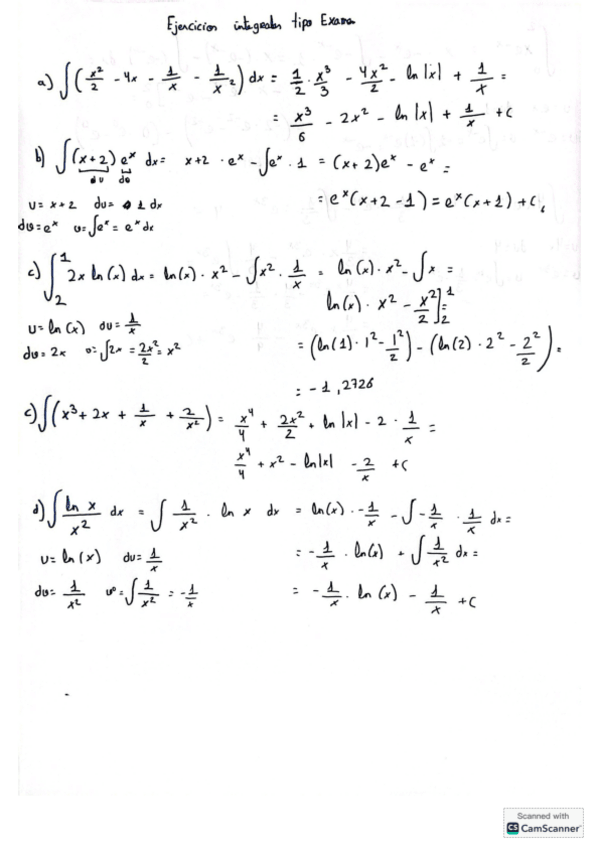 Ejercicios integrales tipo Examen
a) ∫(x²/2 - 4x - 1/x - 1/x²) dx = 1/2 · x³/3 - 4x²/2 - ln|x| + 1/x =
= x³/6 - 2x² - ln|x| + 1/x + C
b) ∫(x+2) eˣ dx = x+2 · eˣ - ∫eˣ · 1 = (x+2)eˣ - eˣ =
du dv
u = x+2 du = 1 dx = eˣ(x+2-1) = eˣ(x+1) + C,
dv = eˣ v = ∫eˣ = eˣ dx
c) ∫₂¹ 2x ln(x) dx = ln(x) · x² - ∫x² · 1/x = ln(x) · x² - ∫x =
ln(x) · x² - x²/2]₂¹ =
u = ln(x) du = 1/x
dv = 2x v = ∫2x = 2x²/2 = x² = (ln(1) · 1² - 1²/2) - (ln(2) · 2² - 2²/2) =
= -1,2726
c) ∫(x³ + 2x + 1/x + 2/x²) = x⁴/4 + 2x²/2 + ln|x| - 2 · 1/x =
x⁴/4 + x² - ln|x| - 2/x + C
d) ∫ ln x/x² dx = ∫ 1/x² · ln x dx = ln(x) · -1/x - ∫ -1/x · 1/x dx =
u = ln(x) du = 1/x = -1/x · ln(x) + ∫ 1/x² dx =
dv = 1/x² v = ∫ 1/x² = -1/x = -1/x · ln(x) - 1/x + C
Scanned with
CS CamScanner